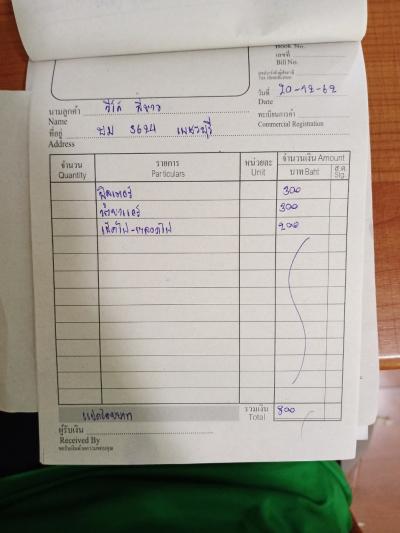 Book No.
เลขที่
Bill No.
เลขประจำตัวผู้เสียภาษี
Tax Identification
วันที่ 20-12-62
Date
นามลูกค้า วีโก้ สีขาว
Name
ทะเบียนการค้า
Commercial Registration
ที่อยู่ ขม 3624 เพชรบุรี
Address
จำนวน รายการ หน่วยละ จำนวนเงิน Amount
Quantity Particulars Unit บาท Baht ส.ต. Stg.
ฟิลเตอร์ 300
300
เช็คไฟ-หลอดไฟ 200
แปดร้อยบาท รวมเงิน 800
Total
ผู้รับเงิน
Received By